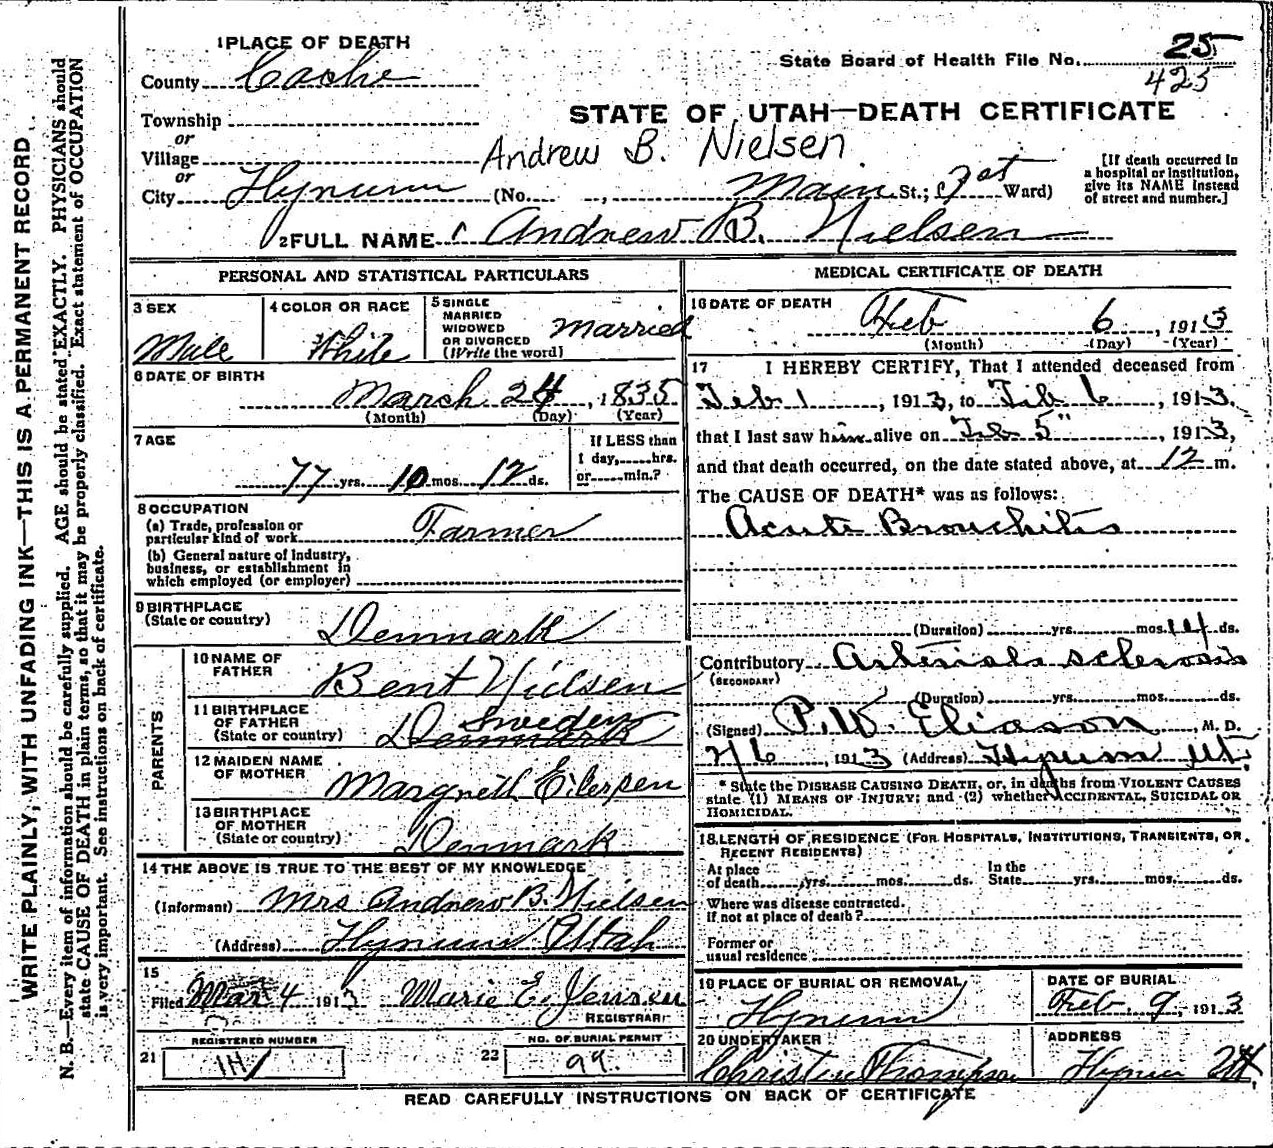 1 PLACE OF DEATH
County Cache
State Board of Health File No. 25
425
STATE OF UTAH—DEATH CERTIFICATE
Township
or
Village
Andrew B. Nielsen
or
City Hyrum (No. , Main St.; 1st Ward)
[If death occurred in a hospital or institution, give its NAME instead of street and number.]
2 FULL NAME Andrew B. Nielsen
PERSONAL AND STATISTICAL PARTICULARS
3 SEX
Male
4 COLOR OR RACE
White
5 SINGLE
MARRIED
WIDOWED
OR DIVORCED
(Write the word)
Married
6 DATE OF BIRTH
March 24, 1835
(Month) (Day) (Year)
7 AGE
77 yrs. 10 mos. 12 ds.
If LESS than
1 day,......hrs.
or......min.?
8 OCCUPATION
(a) Trade, profession or
particular kind of work Farmer
(b) General nature of Industry,
business, or establishment in
which employed (or employer)
9 BIRTHPLACE
(State or country)
Denmark
PARENTS
10 NAME OF
FATHER
Bent Nielsen
11 BIRTHPLACE
OF FATHER
(State or country)
Sweden
Denmark
12 MAIDEN NAME
OF MOTHER
Margreth Eilersen
13 BIRTHPLACE
OF MOTHER
(State or country)
Denmark
14 THE ABOVE IS TRUE TO THE BEST OF MY KNOWLEDGE
(Informant) Mrs Andrew B. Nielsen
(Address) Hyrum Utah
15
Filed Mar 4 1913 Marie E. Jensen
REGISTRAR
REGISTERED NUMBER
21 141
NO. OF BURIAL PERMIT
22 99.
MEDICAL CERTIFICATE OF DEATH
16 DATE OF DEATH
Feb 6, 1913
(Month) (Day) (Year)
17 I HEREBY CERTIFY, That I attended deceased from
Feb 1, 1913, to Feb 6, 1913.
that I last saw him alive on Feb 5", 1913,
and that death occurred, on the date stated above, at 12 m.
The CAUSE OF DEATH* was as follows:
Acute Bronchitis
(Duration) yrs. mos. 14 ds.
Contributory Arterials sclerosis
(SECONDARY)
(Duration) yrs. mos. ds.
(Signed) P. W. Eliason, M. D.
2/6, 1913 (Address) Hyrum Ut.
* State the DISEASE CAUSING DEATH, or, in deaths from VIOLENT CAUSES
state (1) MEANS OF INJURY; and (2) whether ACCIDENTAL, SUICIDAL OR
HOMICIDAL.
18. LENGTH OF RESIDENCE (FOR HOSPITALS, INSTITUTIONS, TRANSIENTS, OR
RECENT RESIDENTS)
At place
of death yrs. mos. ds.
In the
State yrs. mos. ds.
Where was disease contracted.
if not at place of death?
Former or
usual residence
19 PLACE OF BURIAL OR REMOVAL
Hyrum
DATE OF BURIAL
Feb. 9, 1913
20 UNDERTAKER
Christen Thompson
ADDRESS
Hyrum
READ CAREFULLY INSTRUCTIONS ON BACK OF CERTIFICATE
WRITE PLAINLY, WITH UNFADING INK—THIS IS A PERMANENT RECORD
N. B.—Every item of information should be carefully supplied. AGE should be stated EXACTLY. PHYSICIANS should
state CAUSE OF DEATH in plain terms, so that it may be properly classified. Exact statement of OCCUPATION
is very important. See instructions on back of certificate.